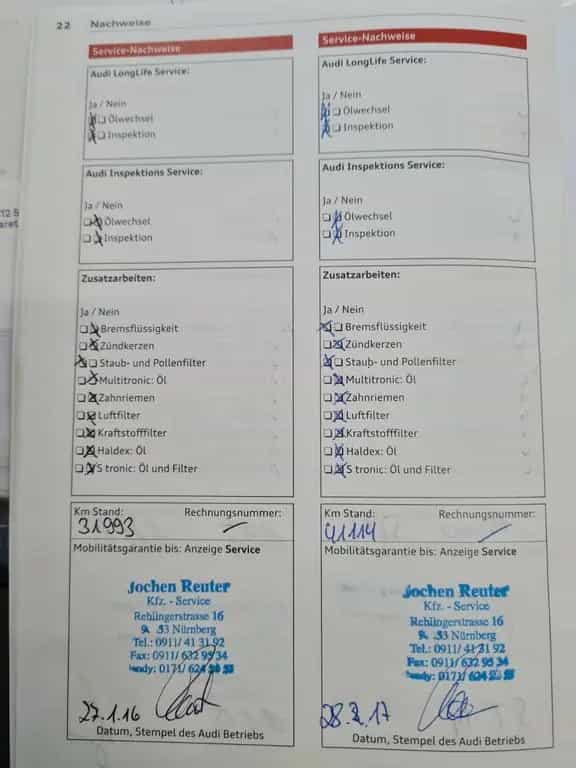 22 Nachweise
Service-Nachweise
Audi LongLife Service:
Ja / Nein
Ölwechsel
Inspektion
Audi Inspektions Service:
Ja / Nein
Ölwechsel
Inspektion
Zusatzarbeiten:
Ja / Nein
Bremsflüssigkeit
Zündkerzen
Staub- und Pollenfilter
Multitronic: Öl
Zahnriemen
Luftfilter
Kraftstofffilter
Haldex: Öl
S tronic: Öl und Filter
Km Stand: Rechnungsnummer:
31993
Mobilitätsgarantie bis: Anzeige Service
Jochen Reuter
Kfz. - Service
Rehlingerstrasse 16
53 Nürnberg
Tel.: 0911/ 41 31 92
Fax: 0911/ 632 95 34
0171/ 624
27.1.16
Datum, Stempel des Audi Betriebs
Service-Nachweise
Audi LongLife Service:
Ja / Nein
Ölwechsel
Inspektion
Audi Inspektions Service:
Ja / Nein
Ölwechsel
Inspektion
Zusatzarbeiten:
Ja / Nein
Bremsflüssigkeit
Zündkerzen
Staub- und Pollenfilter
Multitronic: Öl
Zahnriemen
Luftfilter
Kraftstofffilter
Haldex: Öl
S tronic: Öl und Filter
Km Stand: Rechnungsnummer:
41114
Mobilitätsgarantie bis: Anzeige Service
Jochen Reuter
Kfz. - Service
Rehlingerstrasse 16
53 Nürnberg
Tel.: 0911/ 41 31 92
Fax: 0911/ 632 95 34
0171/ 624
28.2.17
Datum, Stempel des Audi Betriebs